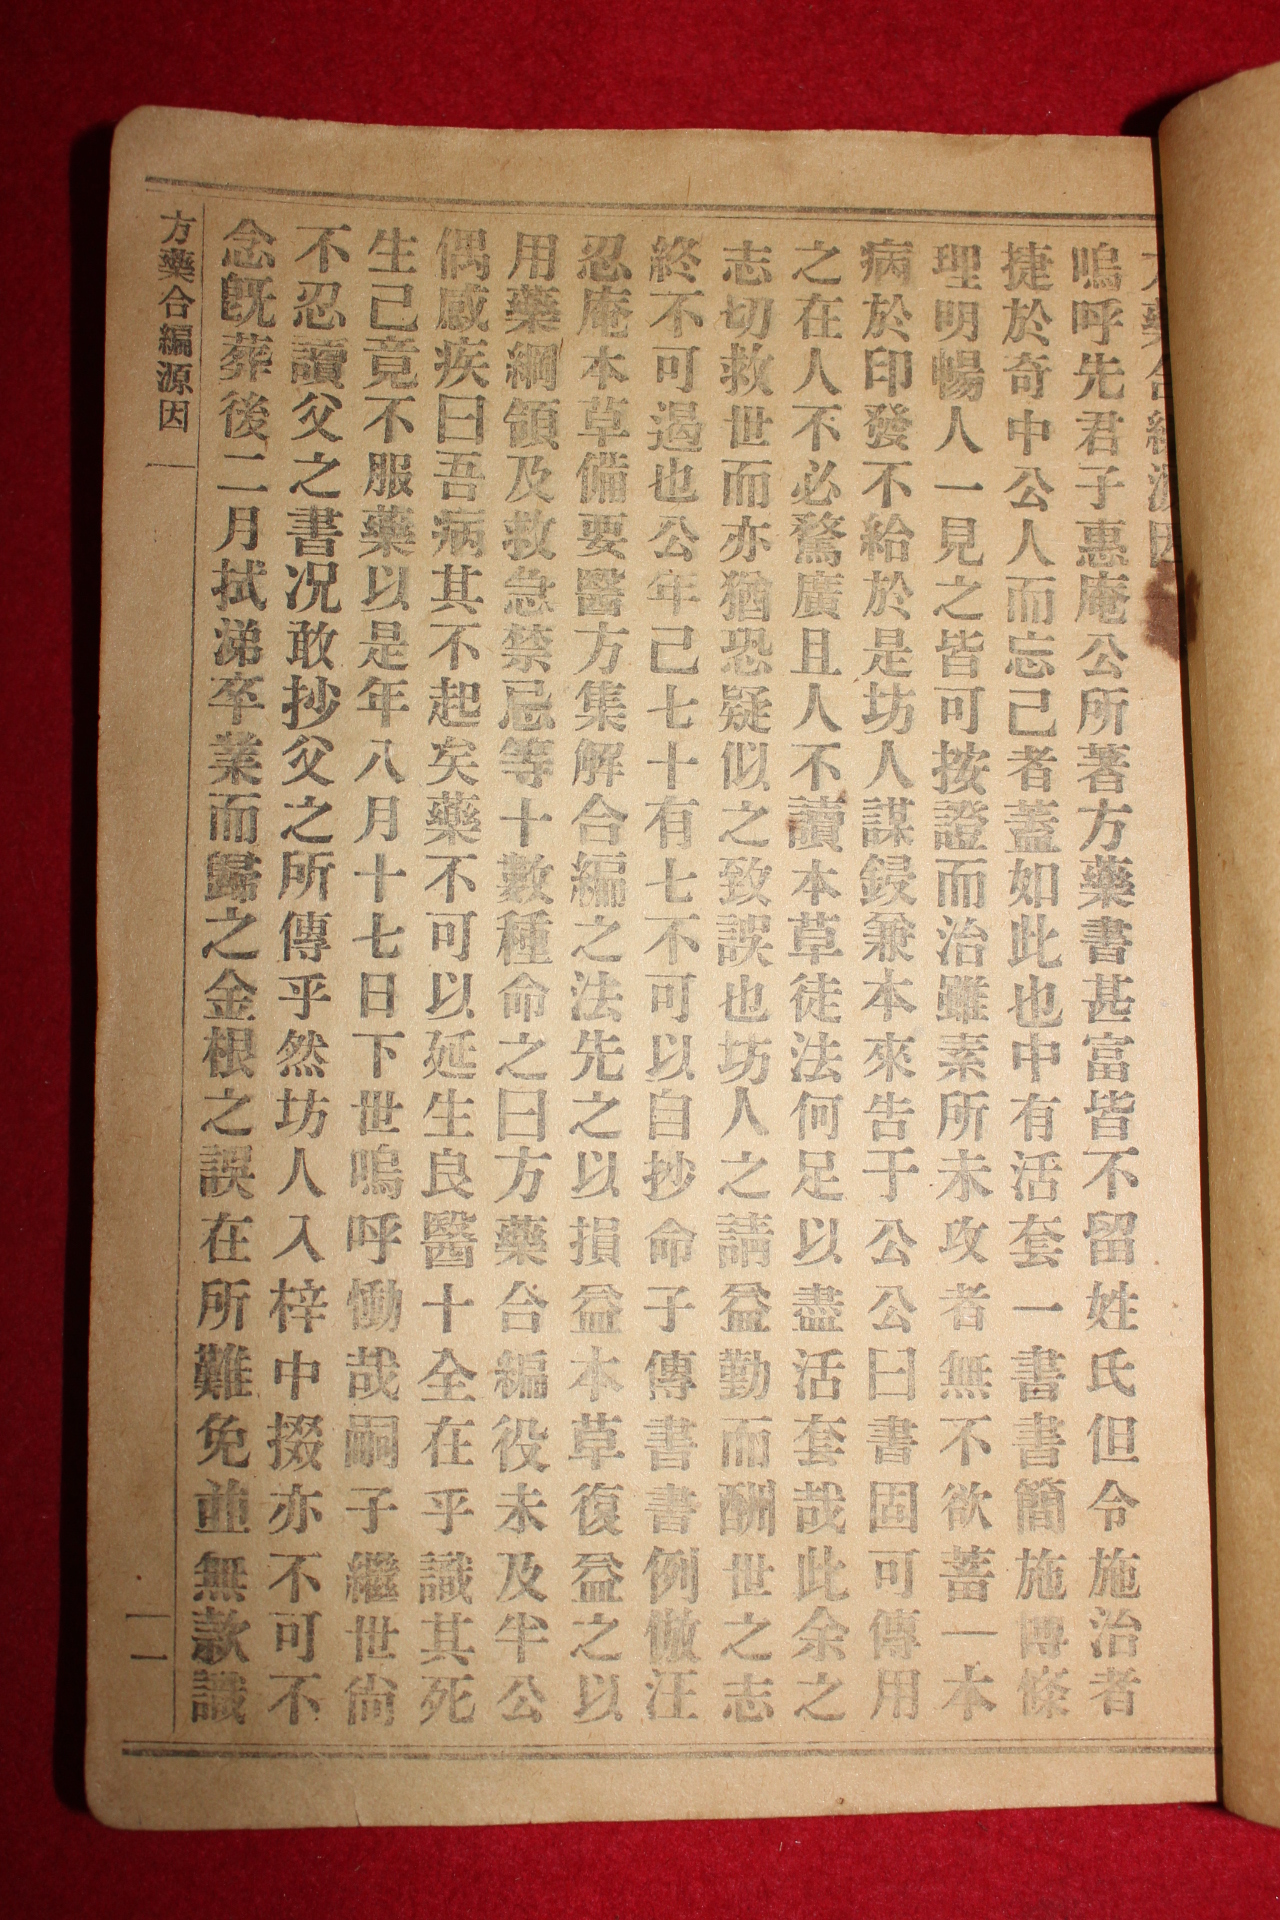 方藥合編源因
嗚呼先君子惠庵公所著方藥書甚富皆不留姓氏但令施治者
捷於奇中公人而忘己者蓋如此也中有活套一書書簡施博條
理明暢人一見之皆可按證而治雖素所未攻者無不欲蓄一本
病於印發不給於是坊人謀鋟兼本來告于公公曰書固可傳用
之在人不必騖廣且人不讀本草徒法何足以盡活套哉此余之
志切救世而亦猶恐疑似之致誤也坊人之請益勤而酬世之志
終不可遏也公年己七十有七不可以自抄命子傳書書例倣汪
忍庵本草備要醫方集解合編之法先之以損益本草復益之以
用藥綱領及救急禁忌等十數種命之曰方藥合編役未及半公
偶感疾曰吾病其不起矣藥不可以延生良醫十全在乎識其死
生己竟不服藥以是年八月十七日下世嗚呼慟哉嗣子繼世尙
不忍讀父之書况敢抄父之所傳乎然坊人入梓中掇亦不可不
念旣葬後二月拭涕卒業而歸之金根之誤在所難免並無款識
方藥合編源因
一